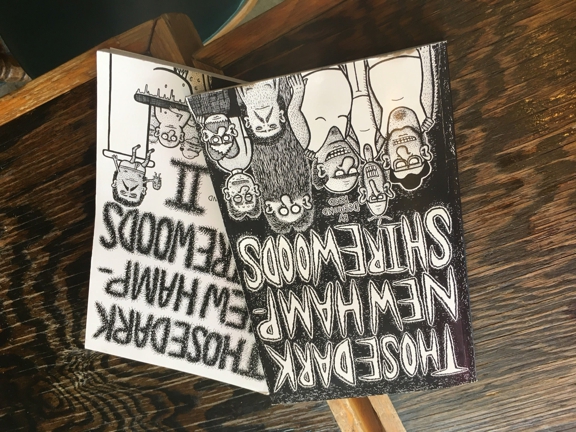 THOSE DARK
NEW HAMP-
SHIREWOODS
BY
THOSE DARK
NEW HAMP-
IREWOODS
II